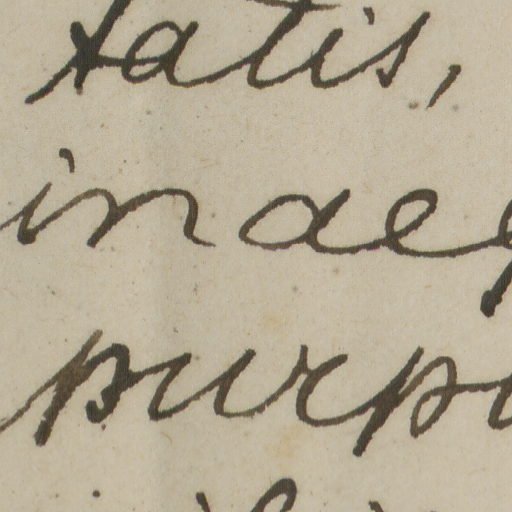 tatis,
in aeq
purpu